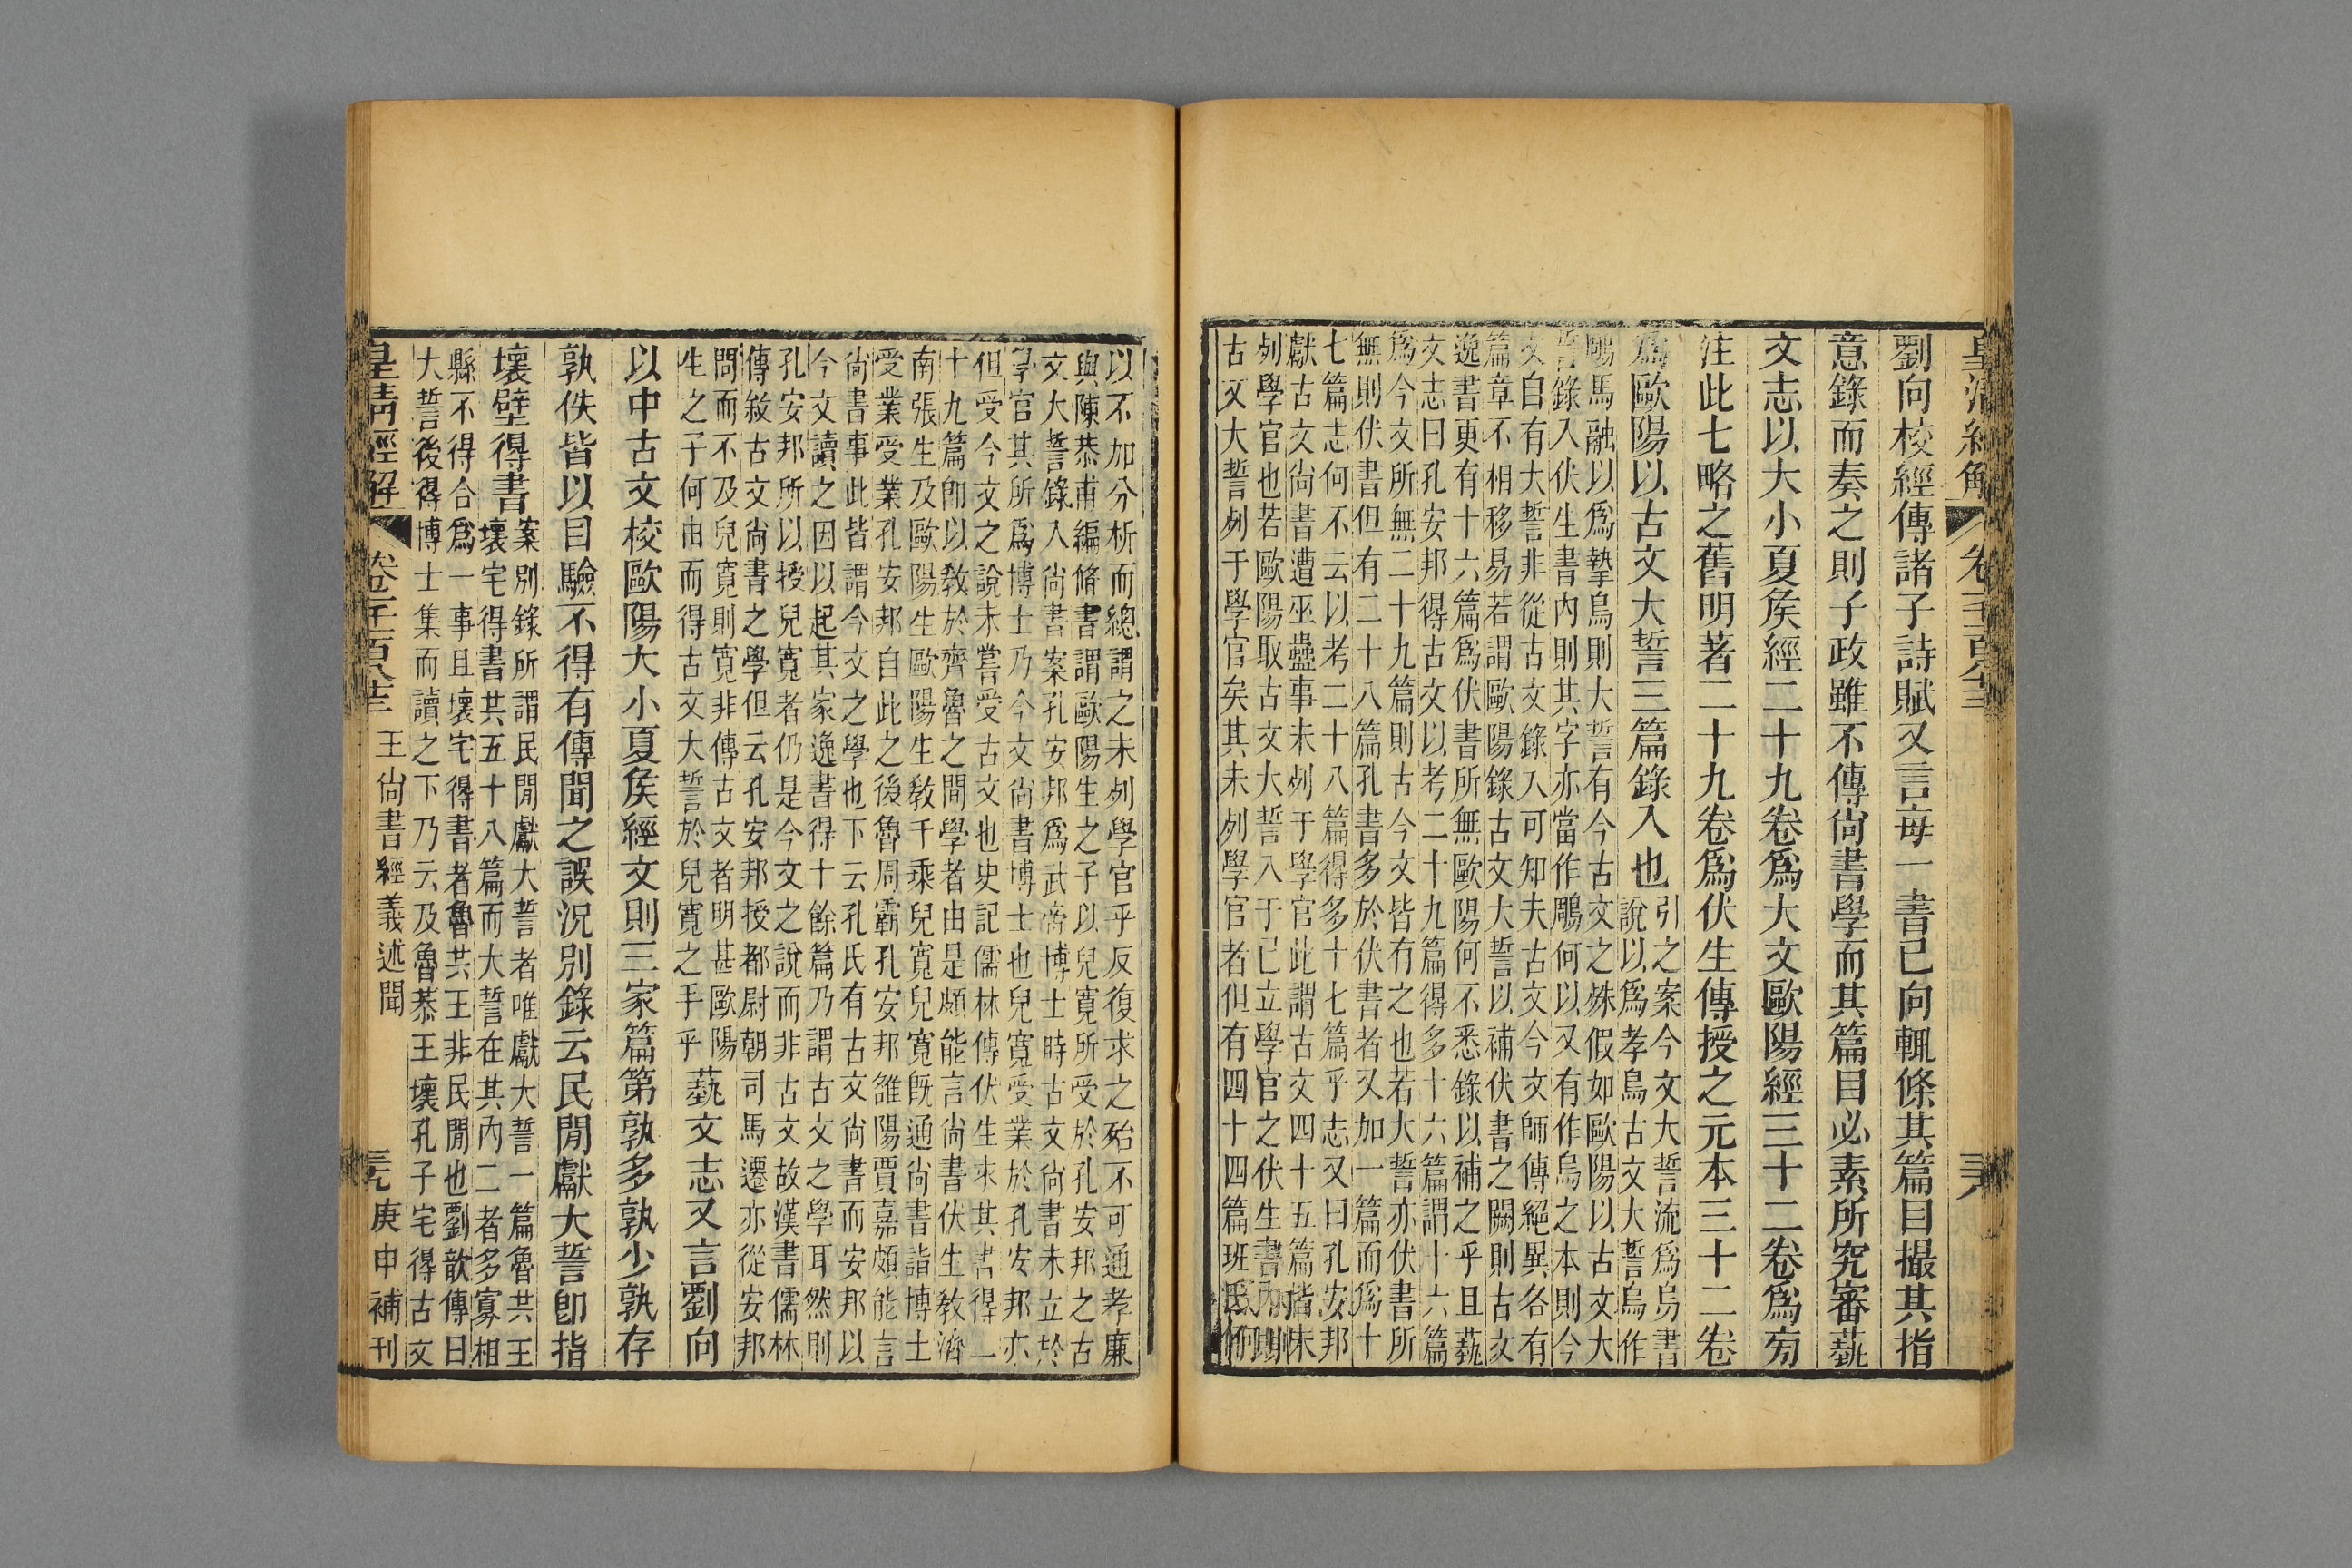 皇清經解 卷千一百八十三 三六
劉向校經傳諸子詩賦又言每一書已向輒條其篇目撮其指
意錄而奏之則子政雖不傳尙書學而其篇目必素所究審蓺
文志以大小夏矦經二十九卷爲大文歐陽經三十二卷爲㫄
注此七略之舊明著二十九卷爲伏生傳授之元本三十二卷
爲歐陽以古文大誓三篇錄入也
引之案今文大誓流爲烏書
說以爲孝烏古文大誓烏作
鵰馬融以爲摯鳥則大誓有今古文之殊假如歐陽以古文大
誓錄入伏生書內則其字亦當作鵰何以又有作烏之本則今
文自有大誓非從古文錄入可知夫古文今文師傳絕異各有
篇章不相移易若謂歐陽錄古文大誓以補伏書之闕則古文
逸書更有十六篇爲伏書所無歐陽何不悉錄以補之乎且蓺
文志曰孔安邦得古文以考二十九篇得多十六篇謂十六篇
爲今文所無二十九篇則古今文皆有之也若大誓亦伏書所
無則伏書但有二十八篇孔書多於伏書者又加一篇而爲十
七篇志何不云以考二十八篇得多十七篇乎志又曰孔安邦
獻古文尙書遭巫蠱事未列于學官此謂古文四十五篇皆未
列學官也若歐陽取古文大誓入于已立學官之伏生書內則
古文大誓列于學官矣其未列學官者但有四十四篇班氏何
以不加分析而總謂之未列學官乎反復求之殆不可通孝廉
與陳恭甫編脩書謂歐陽生之子以兒寬所受於孔安邦之古
文大誓錄入尙書案孔安邦爲武帝博士時古文尙書未立於
學官其所爲博士乃今文尙書博士也兒寬受業於孔安邦亦
但受今文之說未嘗受古文也史記儒林傳伏生求其書得一
十九篇卽以敎於齊魯之閒學者由是頗能言尙書伏生敎濟
南張生及歐陽生歐陽生敎千乘兒寬兒寬旣通尙書詣博士
受業受業孔安邦自此之後魯周霸孔安邦雒陽賈嘉頗能言
尙書事此皆謂今文之學也下云孔氏有古文尙書而安邦以
今文讀之因以起其家逸書得十餘篇乃謂古文之學耳然則
孔安邦所以授兒寬者仍是今文之說而非古文故漢書儒林
傳敘古文尙書之學但云孔安邦授都尉朝司馬遷亦從安邦
問而不及兒寬則寬非傳古文者明甚歐陽
生之子何由而得古文大誓於兒寬之手乎
蓺文志又言劉向
以中古文校歐陽大小夏矦經文則三家篇第孰多孰少孰存
孰佚皆以目驗不得有傳聞之誤況別錄云民閒獻大誓卽指
壞壁得書
案別錄所謂民閒獻大誓者唯獻大誓一篇魯共王
壞宅得書共五十八篇而大誓在其內二者多寡相
縣不得合爲一事且壞宅得書者魯共王非民閒也劉歆傳曰
大誓後得博士集而讀之下乃云及魯恭王壞孔子宅得古文
皇清經解 卷千一百八十三 王尙書經義述聞 三九 庚申補刊